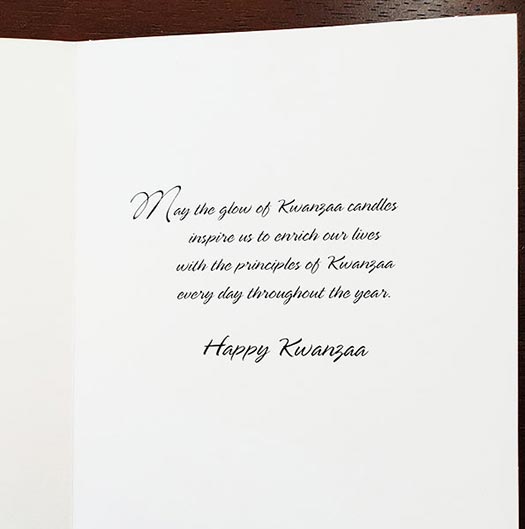 May the glow of Kwanzaa candles
inspire us to enrich our lives
with the principles of Kwanzaa
every day throughout the year.
Happy Kwanzaa